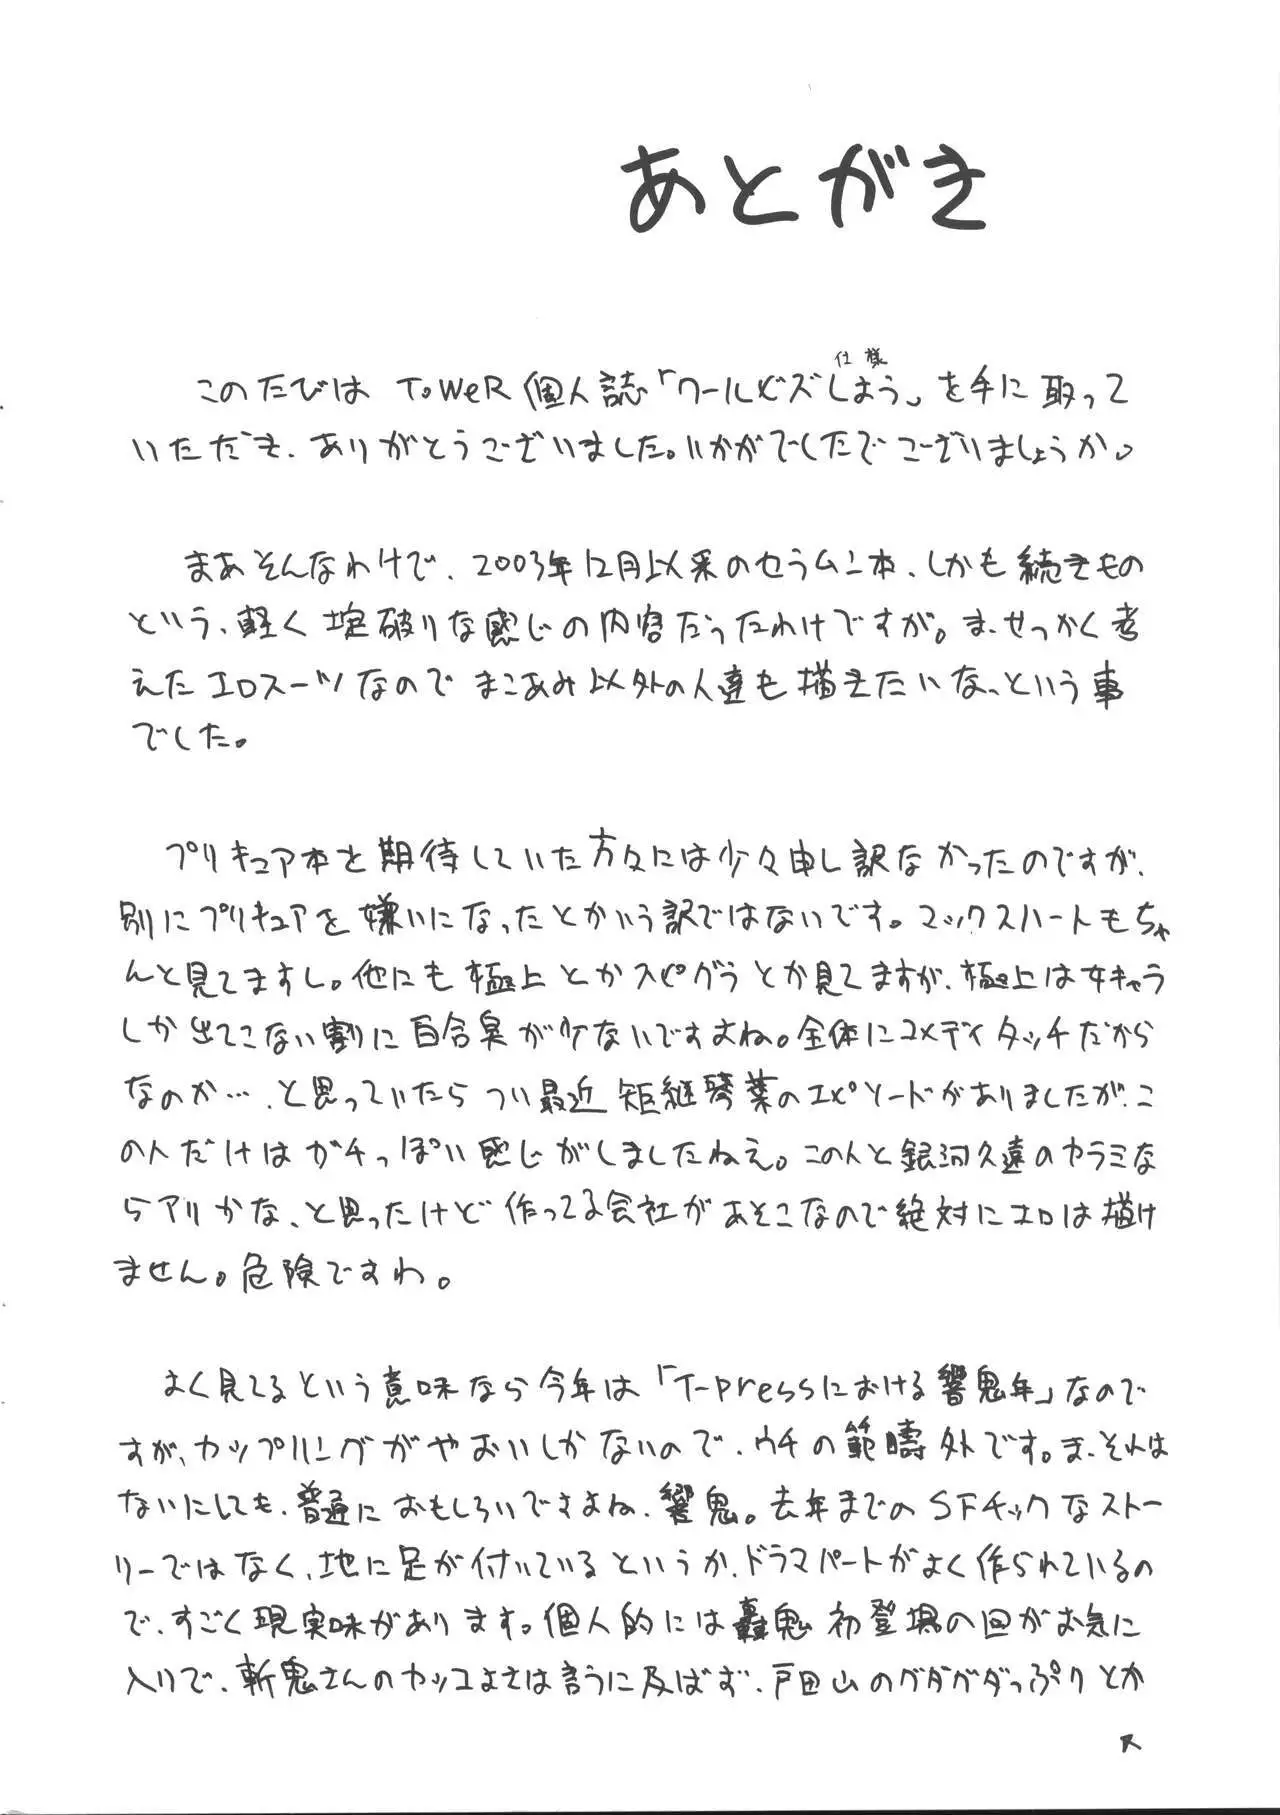 あとがき
仕様
このたびは ToWeR 個人誌「ワールドズしよう」を手に取って
いただき、ありがとうございました。いかがでしたでございましょうか。
まあそんなわけで、2003年12月以来のセラムン本、しかも続きもの
という、軽く掟破りな感じの内容だったわけですが。ま、せっかく考
えたエロスーツなのでまこあみ以外の人達も描きたいなっという事
でした。
プリキュア本と期待していた方々には少々申し訳なかったのですが、
別にプリキュアを嫌いになったとかいう訳ではないです。マックスハートもちゃ
んと見てますし。他にも極上とかスピグラとか見てますが、極上は女キャラ
しか出てこない割に百合臭が少ないですよね。全体にコメディタッチだから
なのか…、と思っていたらつい最近矩継琴葉のエピソードがありましたが、こ
の人だけはガチっぽい感じがしましたねえ。この人と銀河久遠のカラミな
らアリかな、と思ったけど作ってる会社があそこなので絶対にエロは描け
ません。危険ですわ。
よく見てるという意味なら今年は「T-pressにおける響鬼年」なので
すが、カップリングがやおいしかないので、ウチの範疇外です。ま、それは
ないにしても、普通におもしろいですよね、響鬼。去年までのSFチックなストー
リーではなく、地に足が付いているというか、ドラマパートがよく作られているの
で、すごく現実味があります。個人的には轟鬼初登場の回がお気に
入りで、斬鬼さんのカッコよさは言うに及ばず、戸田山のグダグダっぷりとか